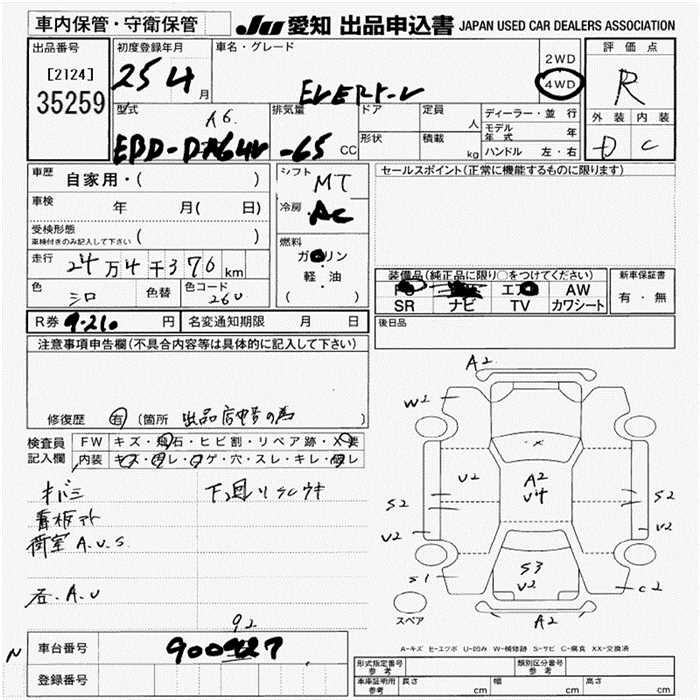 車内保管・守衛保管
JU 愛知 出品申込書 JAPAN USED CAR DEALERS ASSOCIATION
出品番号
[2124]
35259
初度登録年月
25 4月
車名・グレード
2WD
4WD
評価点
R
外装 内装
D C
型式
排気量
-65 CC
ドア
形状
定員
人
積載
kg
ディーラー・並行
モデル年式 年
ハンドル 左・右
車歴 自家用・( )
車検 年 月( 日)
受検形態
車検付きのみ記入して下さい ( )
走行 24万4千376km
色 シロ 色替
色コード 26U
シフト MT
冷房 AC
燃料
ガソリン
・
軽・油
( )
セールスポイント(正常に機能するものに限ります)
装備品(純正品に限り○をつけてください)
PS エアB AW
SR ナビ TV カワシート
新車保証書
有・無
R券 9.210 円
名変通知期限 月 日
後日品
注意事項申告欄(不具合内容等は具体的に記入して下さい)
修復歴 有 (箇所 出品店申告の為
検査員記入欄
FW キズ・飛石・ヒビ割・リペア跡・X要
内装 キズ・汚レ・コゲ・穴・スレ・キレ・腐レ
キバミ
看板アト
荷室 A.U.S.
右.A.U
92
A2
W2
U2
A2
U4
S2
U2
S2
U2
S3
U2
S1
C2
A2
スペア
A-キズ E-エクボ U-凹み W-補修跡 S-サビ C-腐食 XX-交換済
N
車台番号
登録番号
形式指定番号 参考
類別区分番号 参考
車庫証明用 参考
長さ cm
幅 cm
高さ cm